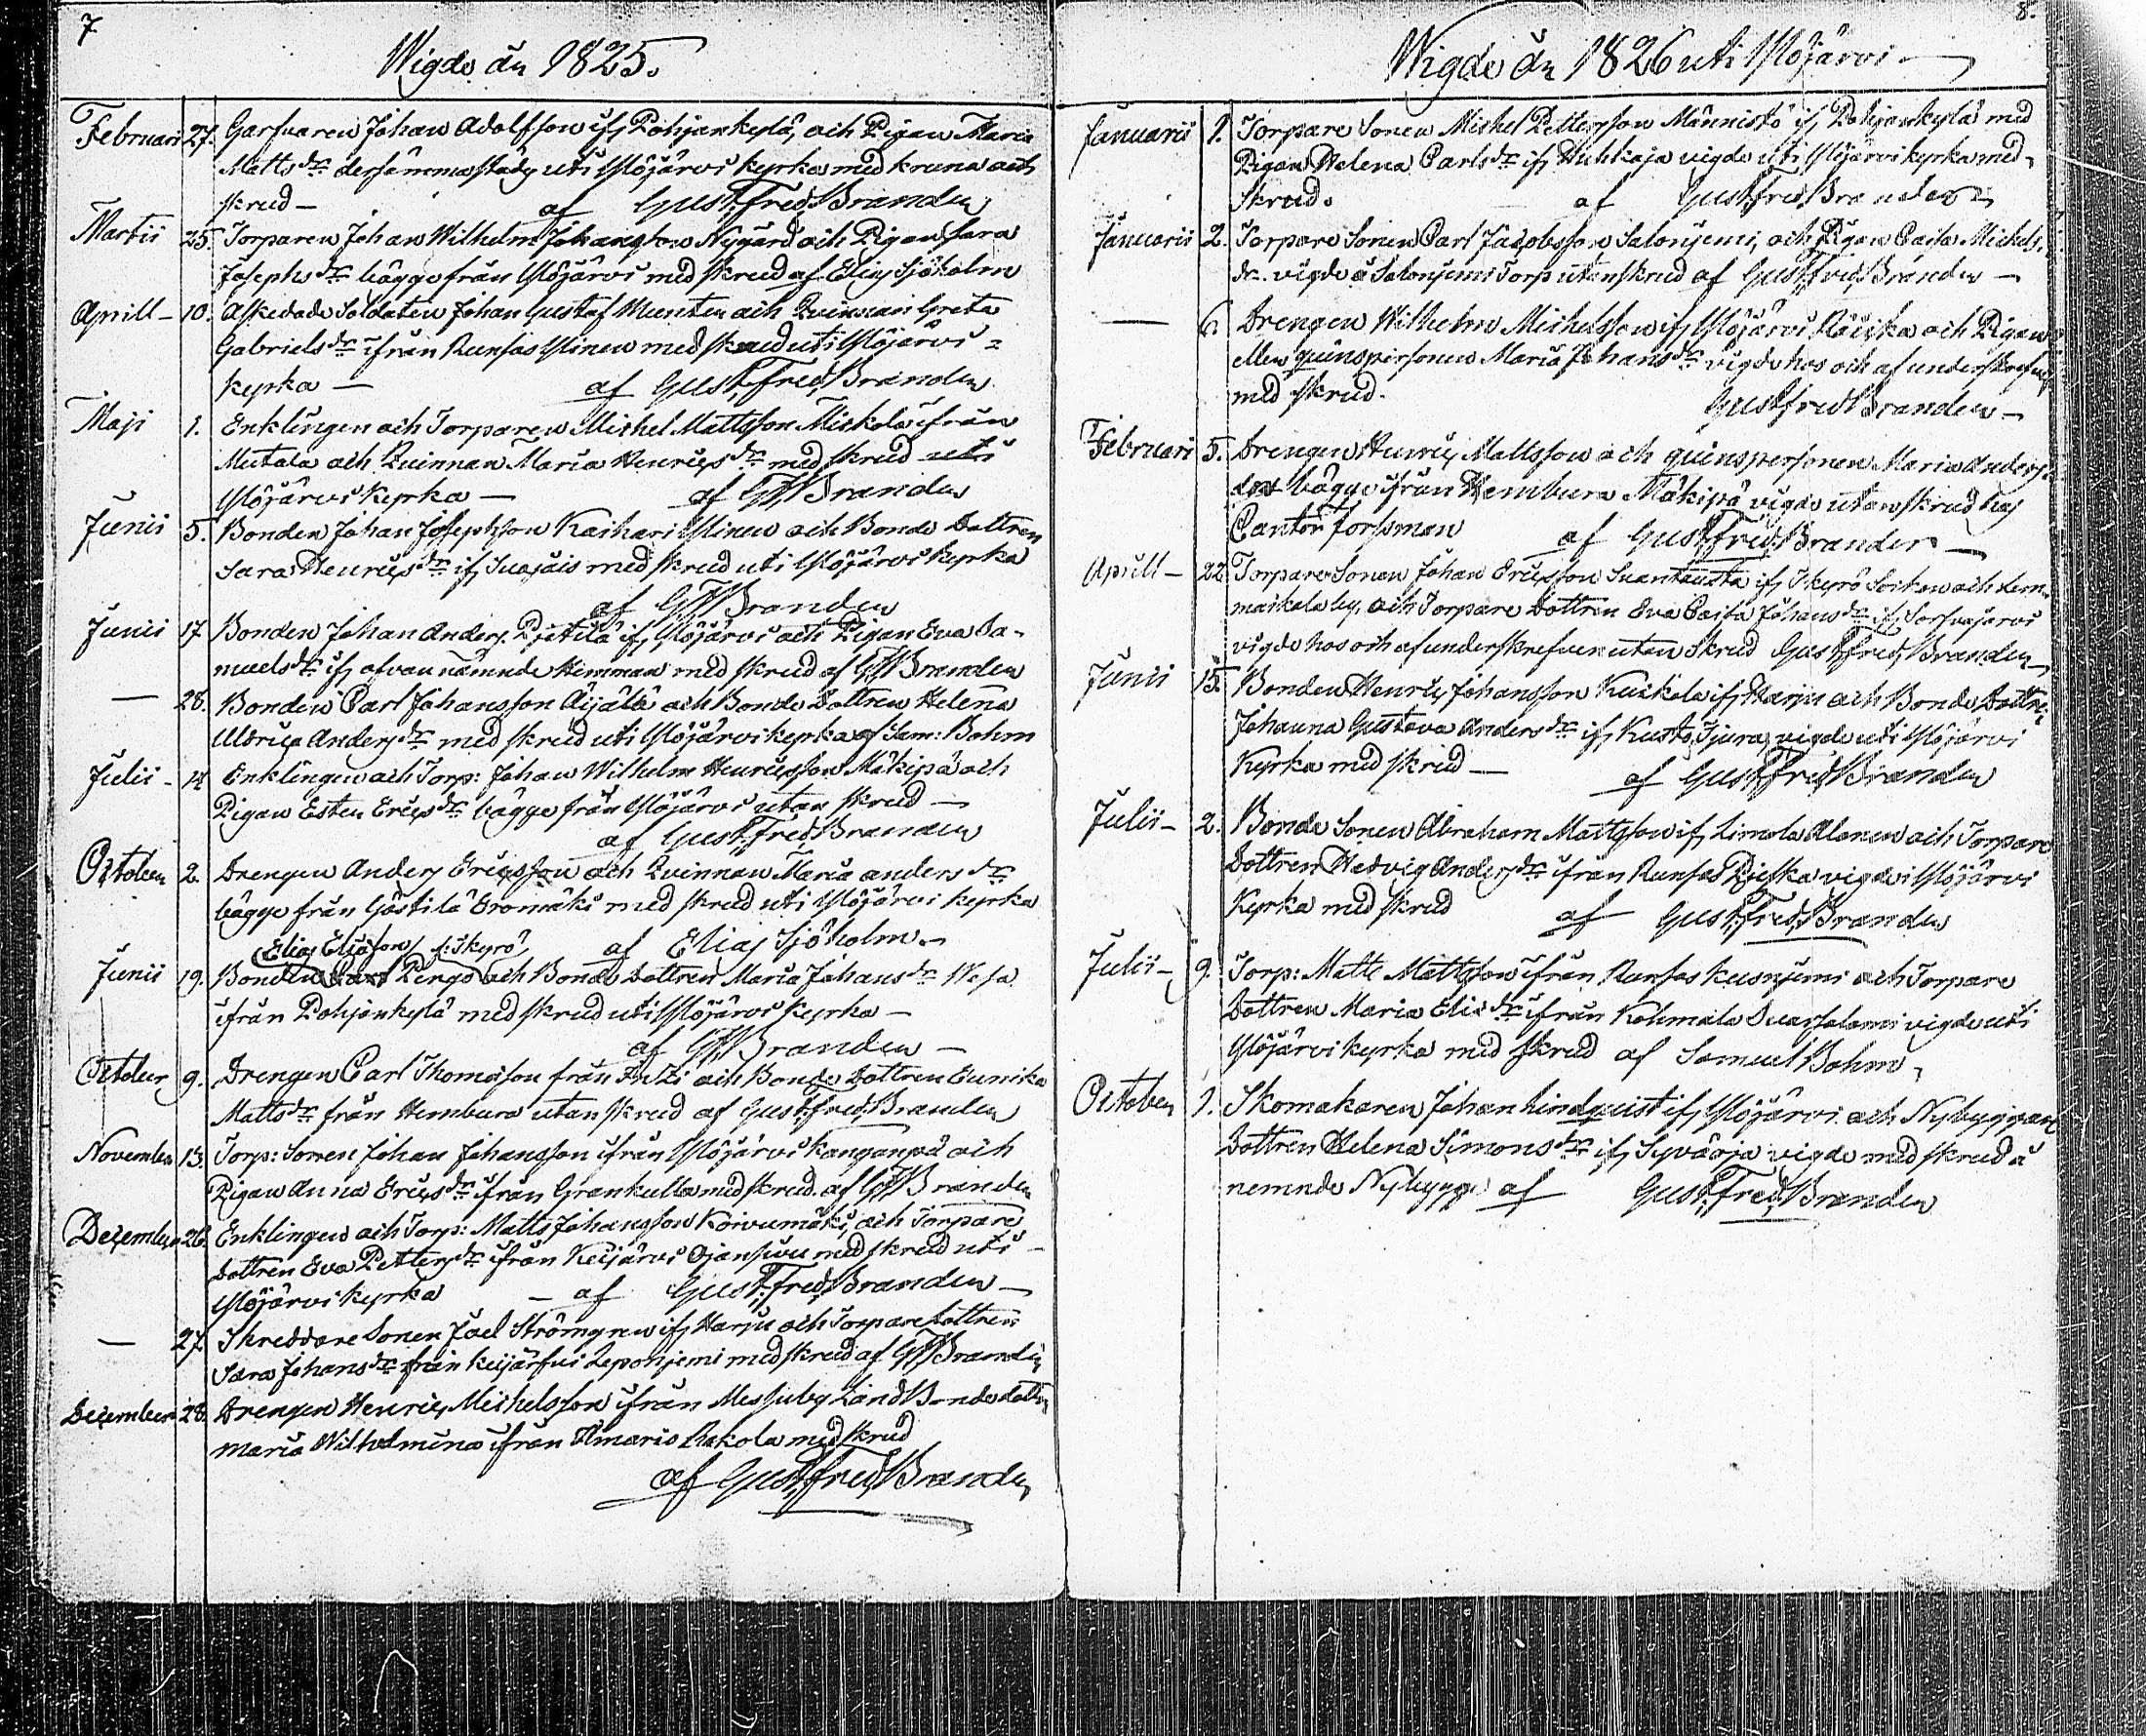 7
Wigde år 1825.
Februari 27. Garfvaren Johan Adolfsson ifr Pohjankylä, och Pigan Maria
Matts dr dersammastädes uti Ylöjärvi kyrka med krona och
skrud — af Gust. Fred. Brander
Martii 25. Torparen Johan Wilhelm Johansson Nygård och Pigan Sara
Josephs dr bägge från Ylöjärvi med skrud af Elias Sjöholm
Aprill — 10. Afskedade Soldaten Johan Gustaf Munter och Qvinnan Greta
Gabriels dr ifrån Runsas Ylinen med skrud uti Ylöjärvi
kyrka — af Gust. Fred. Brander
Maji 1. Enklingen och Torparen Michel Mattsson Mickola ifrån
Mutala och Qvinnan Maria Henrics dr med skrud uti
Ylöjärvi Kyrka — af GFBrander
Junii 5. Bonden Johan Josephsson Kaihari Ylinen och Bonde Dottren
Sara Henrics dr ifr Suojais med skrud uti Ylöjärvi Kyrka
af GFBrander
Junii 17 Bonden Johan Anders. Pjetilä ifr Ylöjärvi och Pigan Eva Sa-
muels dr ifr ofvan nämnde Hemman med skrud af GFBrander
— 28. Bonden Carl Johansson Äijälä och Bonde Dottren Helena
Ulrica Anders dr med skrud uti Ylöjärvi kyrka af Sam: Bohm
Julii — 14 Enklingen och Torp: Johan Wilhelm Henricsson Mäkipä och
Pigan Ester Erics dr bägge från Ylöjärvi utan skrud —
af Gust. Fred. Brander
October 2. Drengen Anders Ericsson och Qvinnan Maria Anders dr
bägge från Gästilä Eromäki med skrud uti Ylöjärvi kyrka
af Elias Sjöholm —
Elias Eliasson f: Ikyrö
Junii 19. Bonden Pengo och Bonde Dottren Maria Johans dr Wesa
ifrån Pohjankylä med skrud uti Ylöjärvi Kyrka —
af GFBrander —
October 9. Drengen Carl Thomasson från och Bonde Dottren Eunika
Matts dr från Hembura utan skrud af Gust. Fred. Brander
November 13. Torp: Sonen Johan Johansson ifrån Ylöjärvi Kanganpä och
Pigan Anna Erics dr ifrån Grankulla med skrud. af GFBrander
December 26. Enklingen och Torp: Matts Johansson Koivumäki, och Torpare
Dottren Eva Petters dr ifrån Keijärvi Ojansuu med skrud uti —
Ylöjärvi kyrka — af Gust. Fred. Brander —
— 27. Skreddare Sonen Joel Strömgren ifr Harju och Torpare Dottren
Sara Johans dr från Keijärfvi Leponjemi med skrud af GFBrander
December 28. Drengen Henric Michelsson ifrån Messuby Land Bonde dottren
Maria Wilhelmina ifrån Ilmaris Rakola med skrud
af Gust. Fred. Brander
8.
Wigde år 1826 uti Ylöjärvi —
Januarii 1. Torpare Sonen Michel Pettersson Männistö ifr Pohjankylä med
Pigan Helena Carls dr ifr Huhkaja vigde uti Ylöjärvi kyrka med
Skrud. af Gust. Fred. Brander
Januarii 2. Torpare Sonen Carl Jacobsson Salonjemi, och Pigan Caisa Michels
dr. vigde å Salonjemi Torp utan skrud af Gust. Fred. Brander —
— 6. Drengen Wilhelm Michelsson ifr Ylöjärvi Räiikä och Pigan
eller qvinspersonen Maria Johans dr vigde hos och af underskrefven
med skrud. Gust. Fred. Brander —
Februari 5. Drengen Henric Mattsson och qvinspersonen Maria Anders
dot bägge ifrån Hembura Mäkipä vigde utan skrud hos
Cantor Forssman af Gust. Fred. Brander —
Aprill — 22 Torpare Sonen Johan Ericsson Suantausta ifr Ikyrö Socken och Lem-
makala by, och Torpare Dottren Eva Caisa Johans dr ifr Sorfvajärvi
vigde hos och af underskrefven utan skrud Gust. Fred. Brander —
Junii 15. Bonden Henric Johansson Kuikola ifr Harju och Bonde Dottren
Johanna Gustava Anders dr ifr Kusto Tjura, vigde uti Ylöjärvi
Kyrka med skrud — af Gust. Fred. Brander
Julii — 2. Bonde Sonen Abraham Mattsson ifr Limola Alanen och Torpare
Dottren Hedvig Anders dr ifrån Runsas Pjeska vigde i Ylöjärvi
Kyrka med skrud af Gust. Fred. Brander
Julii — 9. Torp: Matts Mattsson ifrån Runsas Kusnjemi och Torpare
Dottren Maria Elis dr ifrån Kohmala Svarsalami vigde uti
Ylöjärvi kyrka med skrud af Samuel Bohm,
October 1. Skomakaren Johan Lindquist ifr Ylöjärvi och Nybyggare
Dottren Helena Simons dr ifr Syväoja vigde med skrud å
nemnde Nybygge af Gust. Fred. Brander